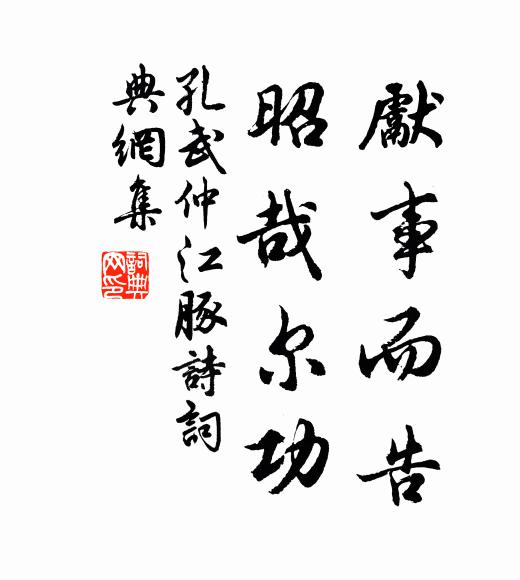 獻事而告
昭哉尔功
孔武仲江豚詩詞
典網集
詞典網印